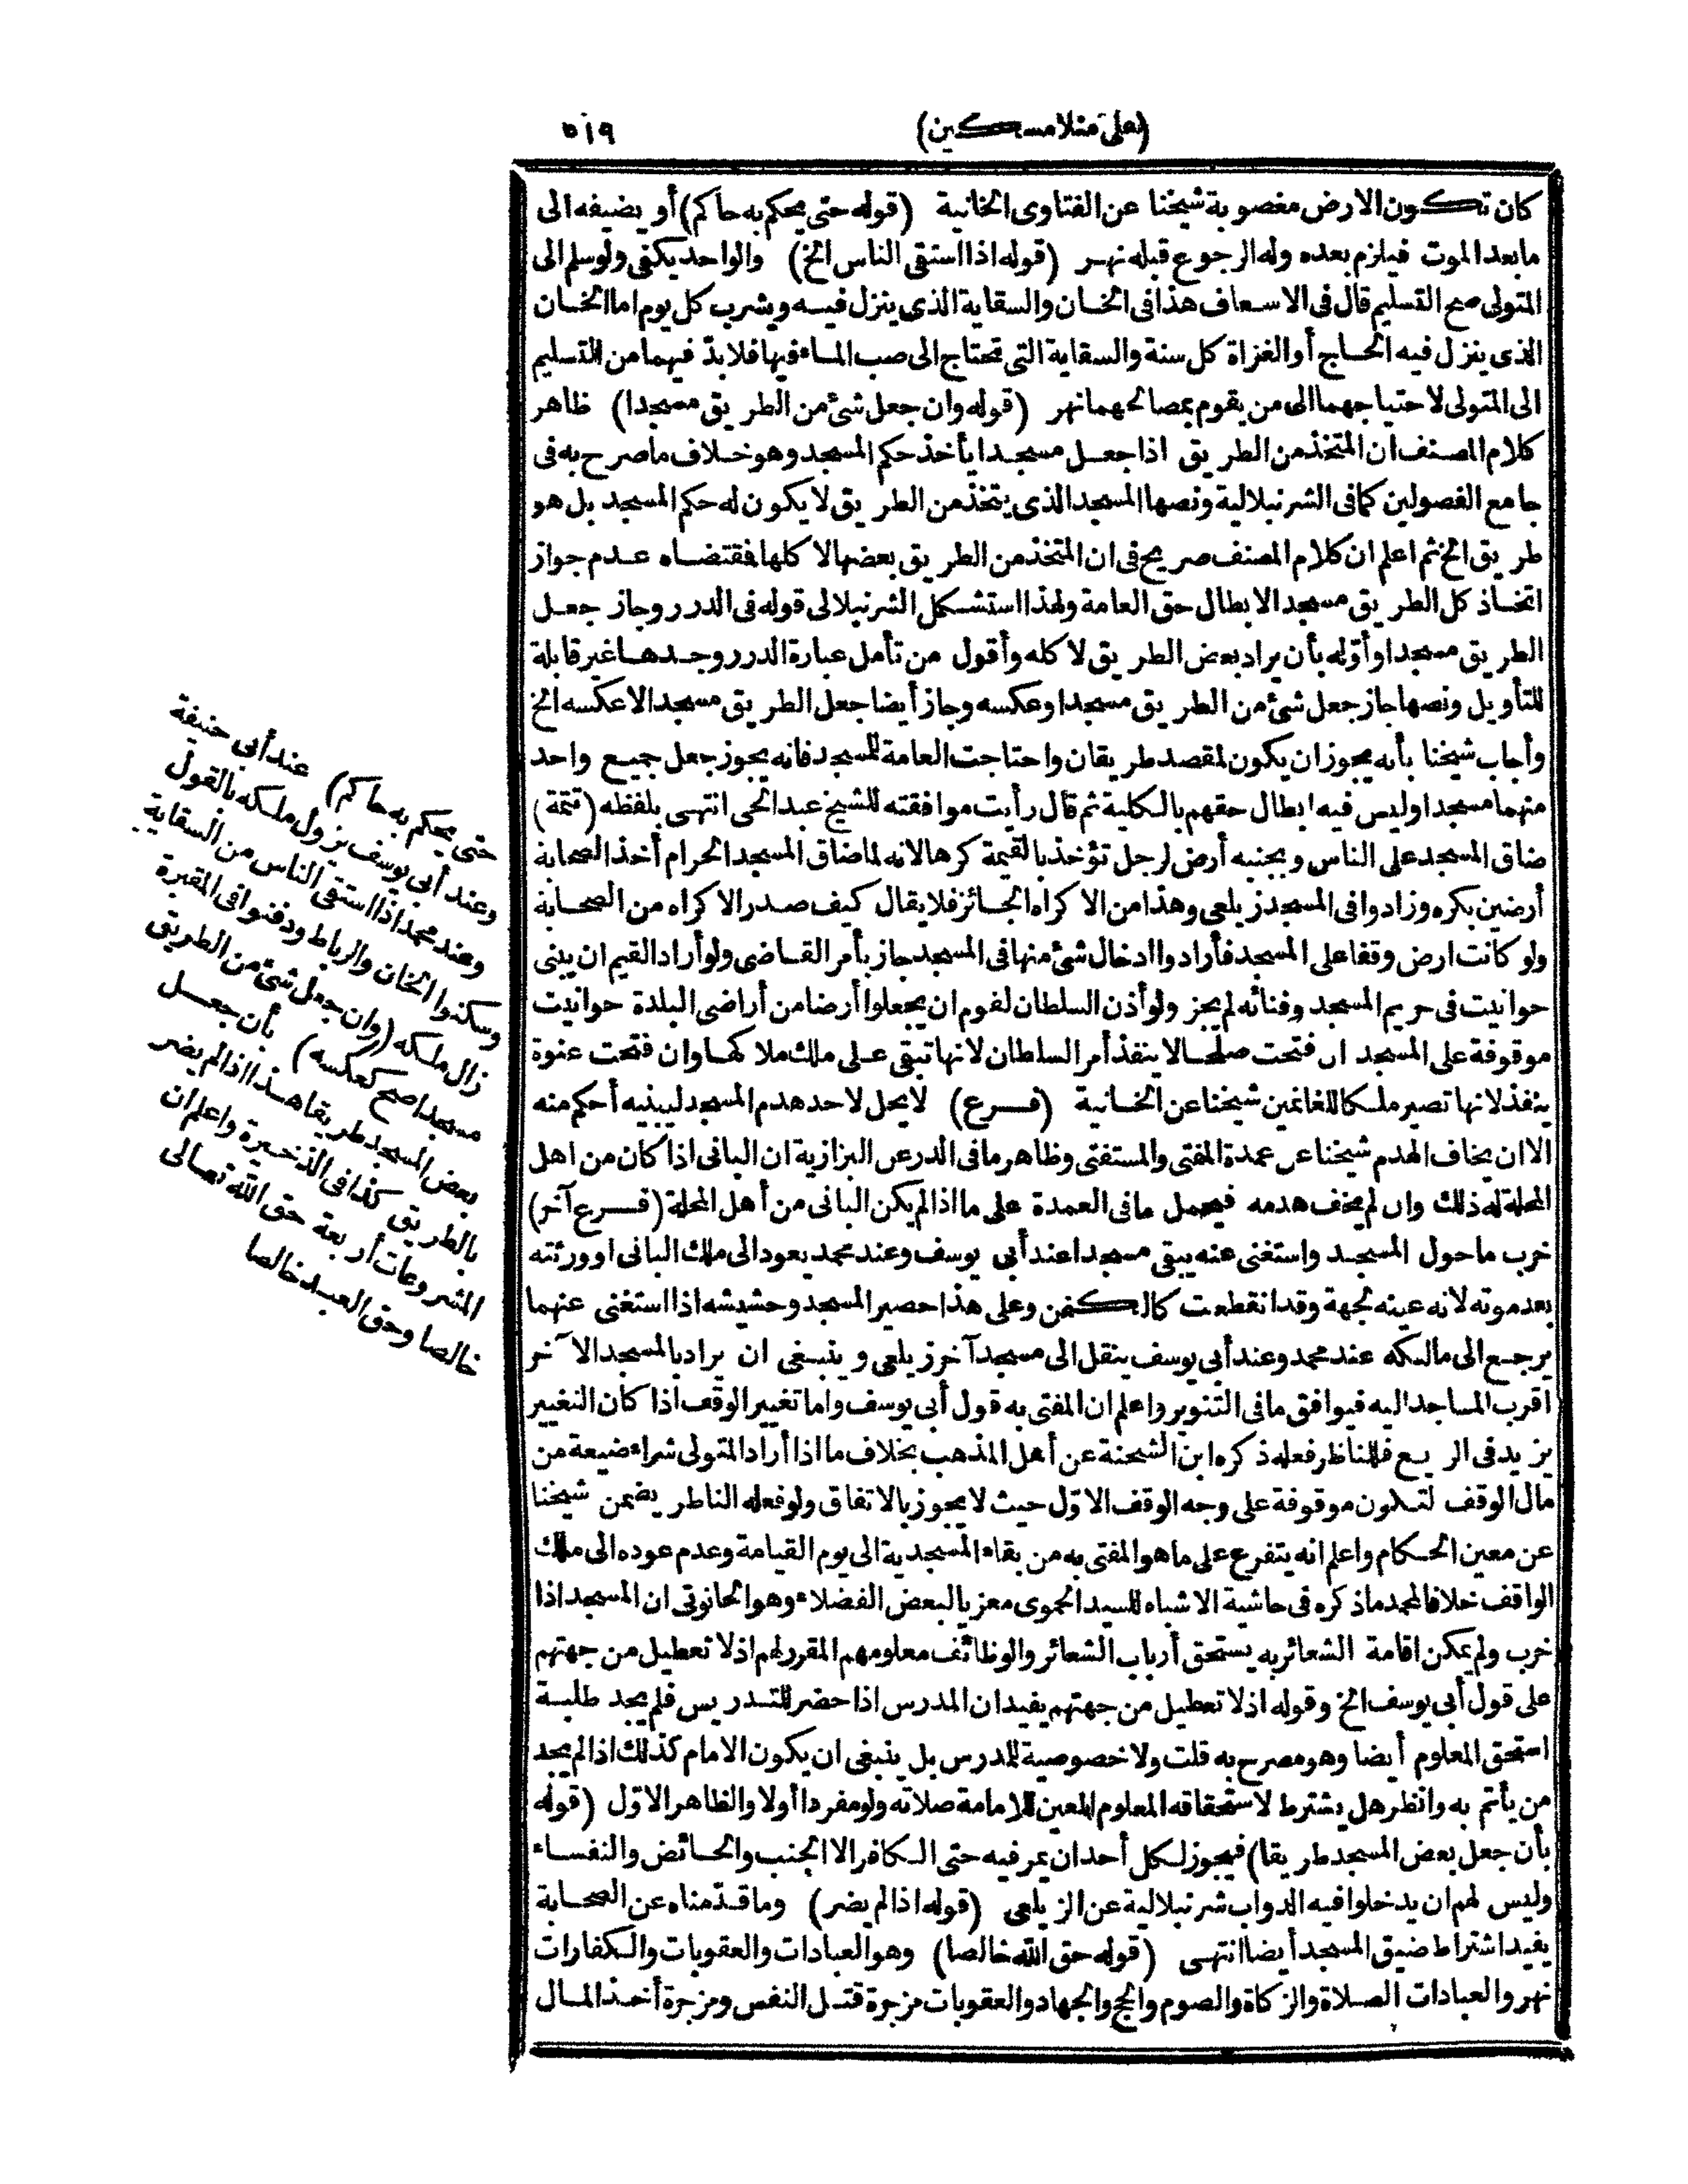 (على منلا مسكين) ٥١٩
كان تكون الارض مغصوبة شيخنا عن الفتاوى الخانية (قوله حتى يحكم به حاكم) أو يضيفه الى
ما بعد الموت فيلزم بعده وله الرجوع قبله نهر (قوله اذا استقى الناس الخ) والواحد يكفى ولو سلم الى
المتولى صح التسليم قال فى الاسعاف هذا فى الخان والسقاية الذى ينزل فيه ويشرب كل يوم اما الخان
الذى ينزل فيه الحاج أو الغزاة كل سنة والسقاية التى تحتاج الى صب الماء فيها فلا بدّ فيهما من التسليم
الى المتولى لاحتياجهما الى من يقوم بمصالحهما نهر (قوله وان جعل شئ من الطريق مسجدا) ظاهر
كلام المصنف ان المتخذ من الطريق اذا جعل مسجدا يأخذ حكم المسجد وهو خلاف ما صرح به فى
جامع الفصولين كما فى الشرنبلالية ونصها المسجد الذى يتخذ من الطريق لا يكون له حكم المسجد بل هو
طريق الخ ثم اعلم ان كلام المصنف صريح فى ان المتخذ من الطريق بعضها لا كلها فقتضاه عدم جواز
اتخاذ كل الطريق مسجدا لابطال حق العامة ولهذا استشكل الشرنبلالى قوله فى الدرر وجاز جعل
الطريق مسجدا وأوّله بأن يراد بعض الطريق لا كله وأقول من تأمل عبارة الدرر وجدها غير قابلة
للتأويل ونصها جاز جعل شئ من الطريق مسجدا وعكسه وجاز أيضا جعل الطريق مسجدا لا عكسه الخ
وأجاب شيخنا بأنه يجوز ان يكون لمقصد طريقان واحتاجت العامة للمسجد فانه يجوز جعل جميع واحد
منهما مسجدا وليس فيه ابطال حقهم بالكلية ثم قال رأيت موافقته للشيخ عبد الحى انتهى بلفظه (تتمة)
ضاق المسجد على الناس وبجنبه أرض لرجل تؤخذ بالقيمة كرها لانه لما ضاق المسجد الحرام أخذ الصحابة
أرضين بكره وزادوا فى المسجد زيلعى وهذا من الاكراه الجائز فلا يقال كيف صدر الاكراه من الصحابة
ولو كانت ارض وقفا على المسجد فأرادوا ادخال شئ منها فى المسجد جاز بأمر القاضى ولو أراد القيم ان يبنى
حوانيت فى حريم المسجد وفنائه لم يجز ولو أذن السلطان لقوم ان يجعلوا أرضا من أراضى البلدة حوانيت
موقوفة على المسجد ان فتحت صلحا لا ينفذ أمر السلطان لانها تبقى على ملك ملاكها وان فتحت عنوة
ينفذ لانها تصير ملكا للغانمين شيخنا عن الخانية (فرع) لا يحل لاحد هدم المسجد ليبنيه أحكم منه
الا ان يخاف الهدم شيخنا عن عمدة المفتى والمستفتى وظاهر ما فى الدر عن البزازية ان البانى اذا كان من اهل
المحلة له ذلك وان لم يخف هدمه فيحمل ما فى العمدة على ما اذا لم يكن البانى من أهل المحلة (فرع آخر)
خرب ما حول المسجد واستغنى عنه يبقى مسجدا عند أبى يوسف وعند محمد يعود الى ملك البانى او ورثته
بعد موته لانه عينه لجهة وقد انقطعت كالكفن وعلى هذا حصير المسجد وحشيشه اذا استغنى عنهما
يرجع الى مالكه عند محمد وعند أبى يوسف ينقل الى مسجد آخر زيلعى وينبغى ان يراد بالمسجد الآخر
اقرب المساجد اليه فيوافق ما فى التنوير واعلم ان المفتى به قول أبى يوسف واما تغيير الوقف اذا كان التغيير
يزيد فى الريع فللناظر فعله ذكره ابن الشحنة عن أهل المذهب بخلاف ما اذا أراد المتولى شراء ضيعة من
مال الوقف لتكون موقوفة على وجه الوقف الاوّل حيث لا يجوز بالاتفاق ولو فعله الناظر يضمن شيخنا
عن معين الحكام واعلم انه يتفرع على ما هو المفتى به من بقاء المسجدية الى يوم القيامة وعدم عوده الى ملك
الواقف خلافا لمحمد ما ذكره فى حاشية الاشباه للسيد الحموى معزيا لبعض الفضلاء وهو الحانوتى ان المسجد اذا
خرب ولم يمكن اقامة الشعائر به يستحق أرباب الشعائر والوظائف معلومهم المقرر لهم اذ لا تعطيل من جهتهم
على قول أبى يوسف الخ وقوله اذ لا تعطيل من جهتهم يفيد ان المدرس اذا حضر للتدريس فلم يجد طلبة
استحق المعلوم أيضا وهو مصرح به قلت ولا خصوصية للمدرس بل ينبغى ان يكون الامام كذلك اذا لم يجد
من يأتم به وانظر هل يشترط لاستحقاقه المعلوم المعين للامامة صلاته ولو مفردا أولا والظاهر الاوّل (قوله
بأن جعل بعض المسجد طريقا) فيجوز لكل أحد ان يمر فيه حتى الكافر الا الجنب والحائض والنفساء
وليس لهم ان يدخلوا فيه الدواب شرنبلالية عن الزيلعى (قوله اذا لم يضر) وما قدّمناه عن الصحابة
يفيد اشتراط ضيق المسجد أيضا انتهى (قوله حق الله خالصا) وهو العبادات والعقوبات والكفارات
نهر والعبادات الصلاة والزكاة والصوم والحج والجهاد والعقوبات مزجرة قتل النفس ومزجرة أخذ المال
حتى يحكم به حاكم) عند أبى حنيفة
وعند أبى يوسف يزول ملكه بالقول
وعند محمد اذا استقى الناس من السقاية
وسكنوا الخان والرباط ودفنوا فى المقبرة
زال ملكه (وان جعل شئ من الطريق
مسجدا صح كعكسه) بأن جعل
بعض المسجد طريقا هذا اذا لم يضر
بالطريق كذا فى الذخيرة واعلم ان
المشروعات أربعة حق الله تعالى
خالصا وحق العبد خالصا